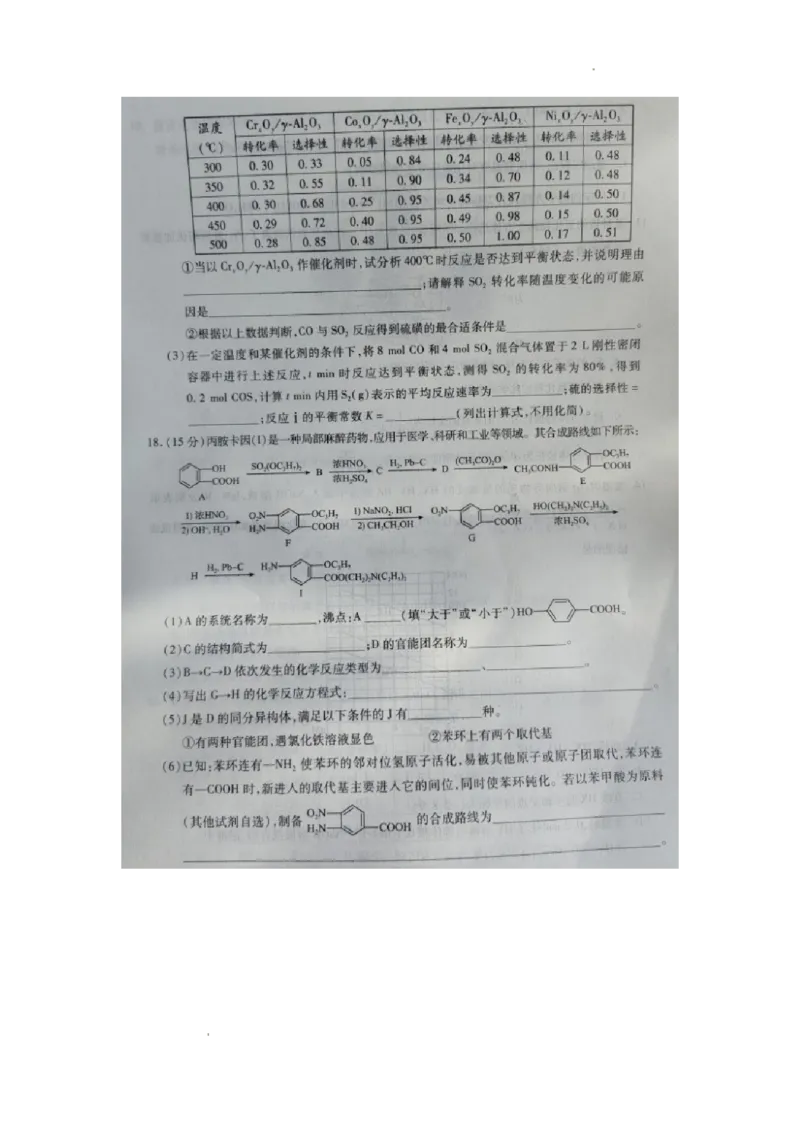 温度 CrxOy/γ-Al2O3 CoxOy/γ-Al2O3 FexOy/γ-Al2O3 NixOy/γ-Al2O3
(℃) 转化率 选择性 转化率 选择性 转化率 选择性 转化率 选择性
300 0.30 0.33 0.05 0.84 0.24 0.48 0.11 0.48
350 0.32 0.55 0.11 0.90 0.34 0.70 0.12 0.48
400 0.30 0.68 0.25 0.95 0.45 0.87 0.14 0.50
450 0.29 0.72 0.40 0.95 0.49 0.98 0.15 0.50
500 0.28 0.85 0.48 0.95 0.50 1.00 0.17 0.51
①当以CrxOy/γ-Al2O3作催化剂时,试分析400℃时反应是否达到平衡状态,并说明理由
;请解释SO2转化率随温度变化的可能原
因是 。
②根据以上数据判断,CO与SO2反应得到硫磺的最合适条件是 。
(3)在一定温度和某催化剂的条件下,将8 mol CO和4 mol SO2混合气体置于2 L刚性密闭
容器中进行上述反应,t min时反应达到平衡状态,测得SO2的转化率为80%,得到
0.2 mol COS,计算t min内用S2(g)表示的平均反应速率为 ;硫的选择性=
;反应ⅰ的平衡常数K= (列出计算式,不用化简)。
18.(15分)丙胺卡因(I)是一种局部麻醉药物,应用于医学、科研和工业等领域。其合成路线如下所示:
OH COOH A SO2(OC3H7)2 B 浓HNO3 浓H2SO4 C H2,Pb-C D (CH3CO)2O CH3CONH OC3H7 COOH E
1)浓HNO3 2)OH-,H2O O2N H2N OC3H7 COOH F 1)NaNO2,HCl 2)CH3CH2OH O2N OC3H7 COOH G HO(CH2)2N(C2H5)2 浓H2SO4
H H2,Pb-C H2N OC3H7 COO(CH2)2N(C2H5)2 I
(1)A的系统名称为 ,沸点:A (填“大于”或“小于”)HO COOH。
(2)C的结构简式为 ;D的官能团名称为 。
(3)B→C→D依次发生的化学反应类型为 、 。
(4)写出G→H的化学反应方程式: 。
(5)J是D的同分异构体,满足以下条件的J有 种。
①有两种官能团,遇氯化铁溶液显色 ②苯环上有两个取代基
(6)已知:苯环连有—NH2使苯环的邻对位氢原子活化,易被其他原子或原子团取代,苯环连
有—COOH时,新进入的取代基主要进入它的间位,同时使苯环钝化。若以苯甲酸为原料
(其他试剂自选),制备 O2N H2N COOH 的合成路线为
。